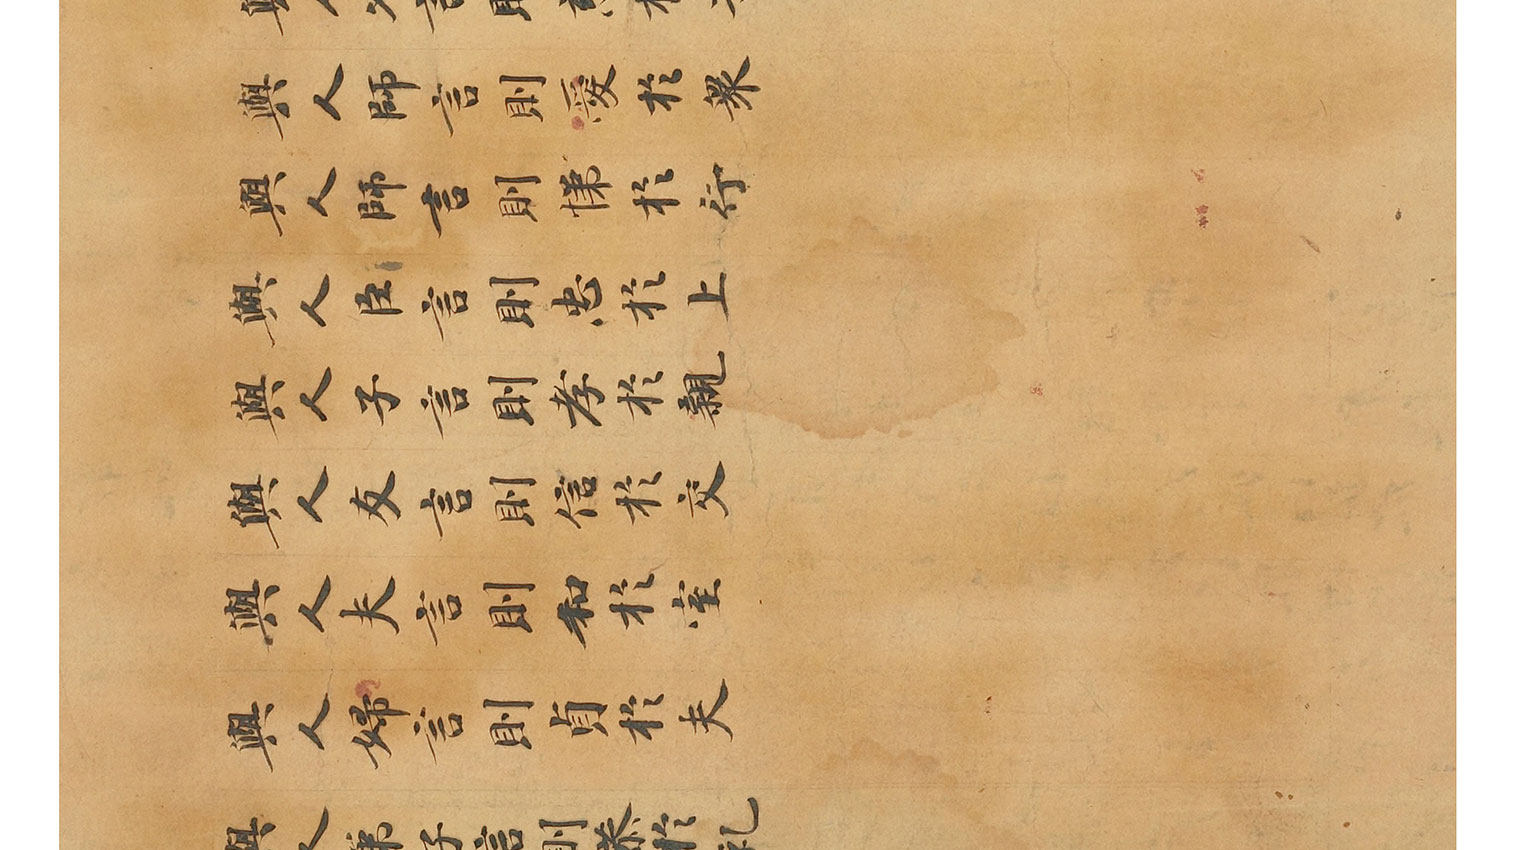 與人父言則慈於
與人師言則愛於衆
與人師言則悌於行
與人臣言則忠於上
與人子言則孝於親
與人友言則信於交
與人夫言則和於室
與人婦言則貞於夫
與人弟子言則恭於礼